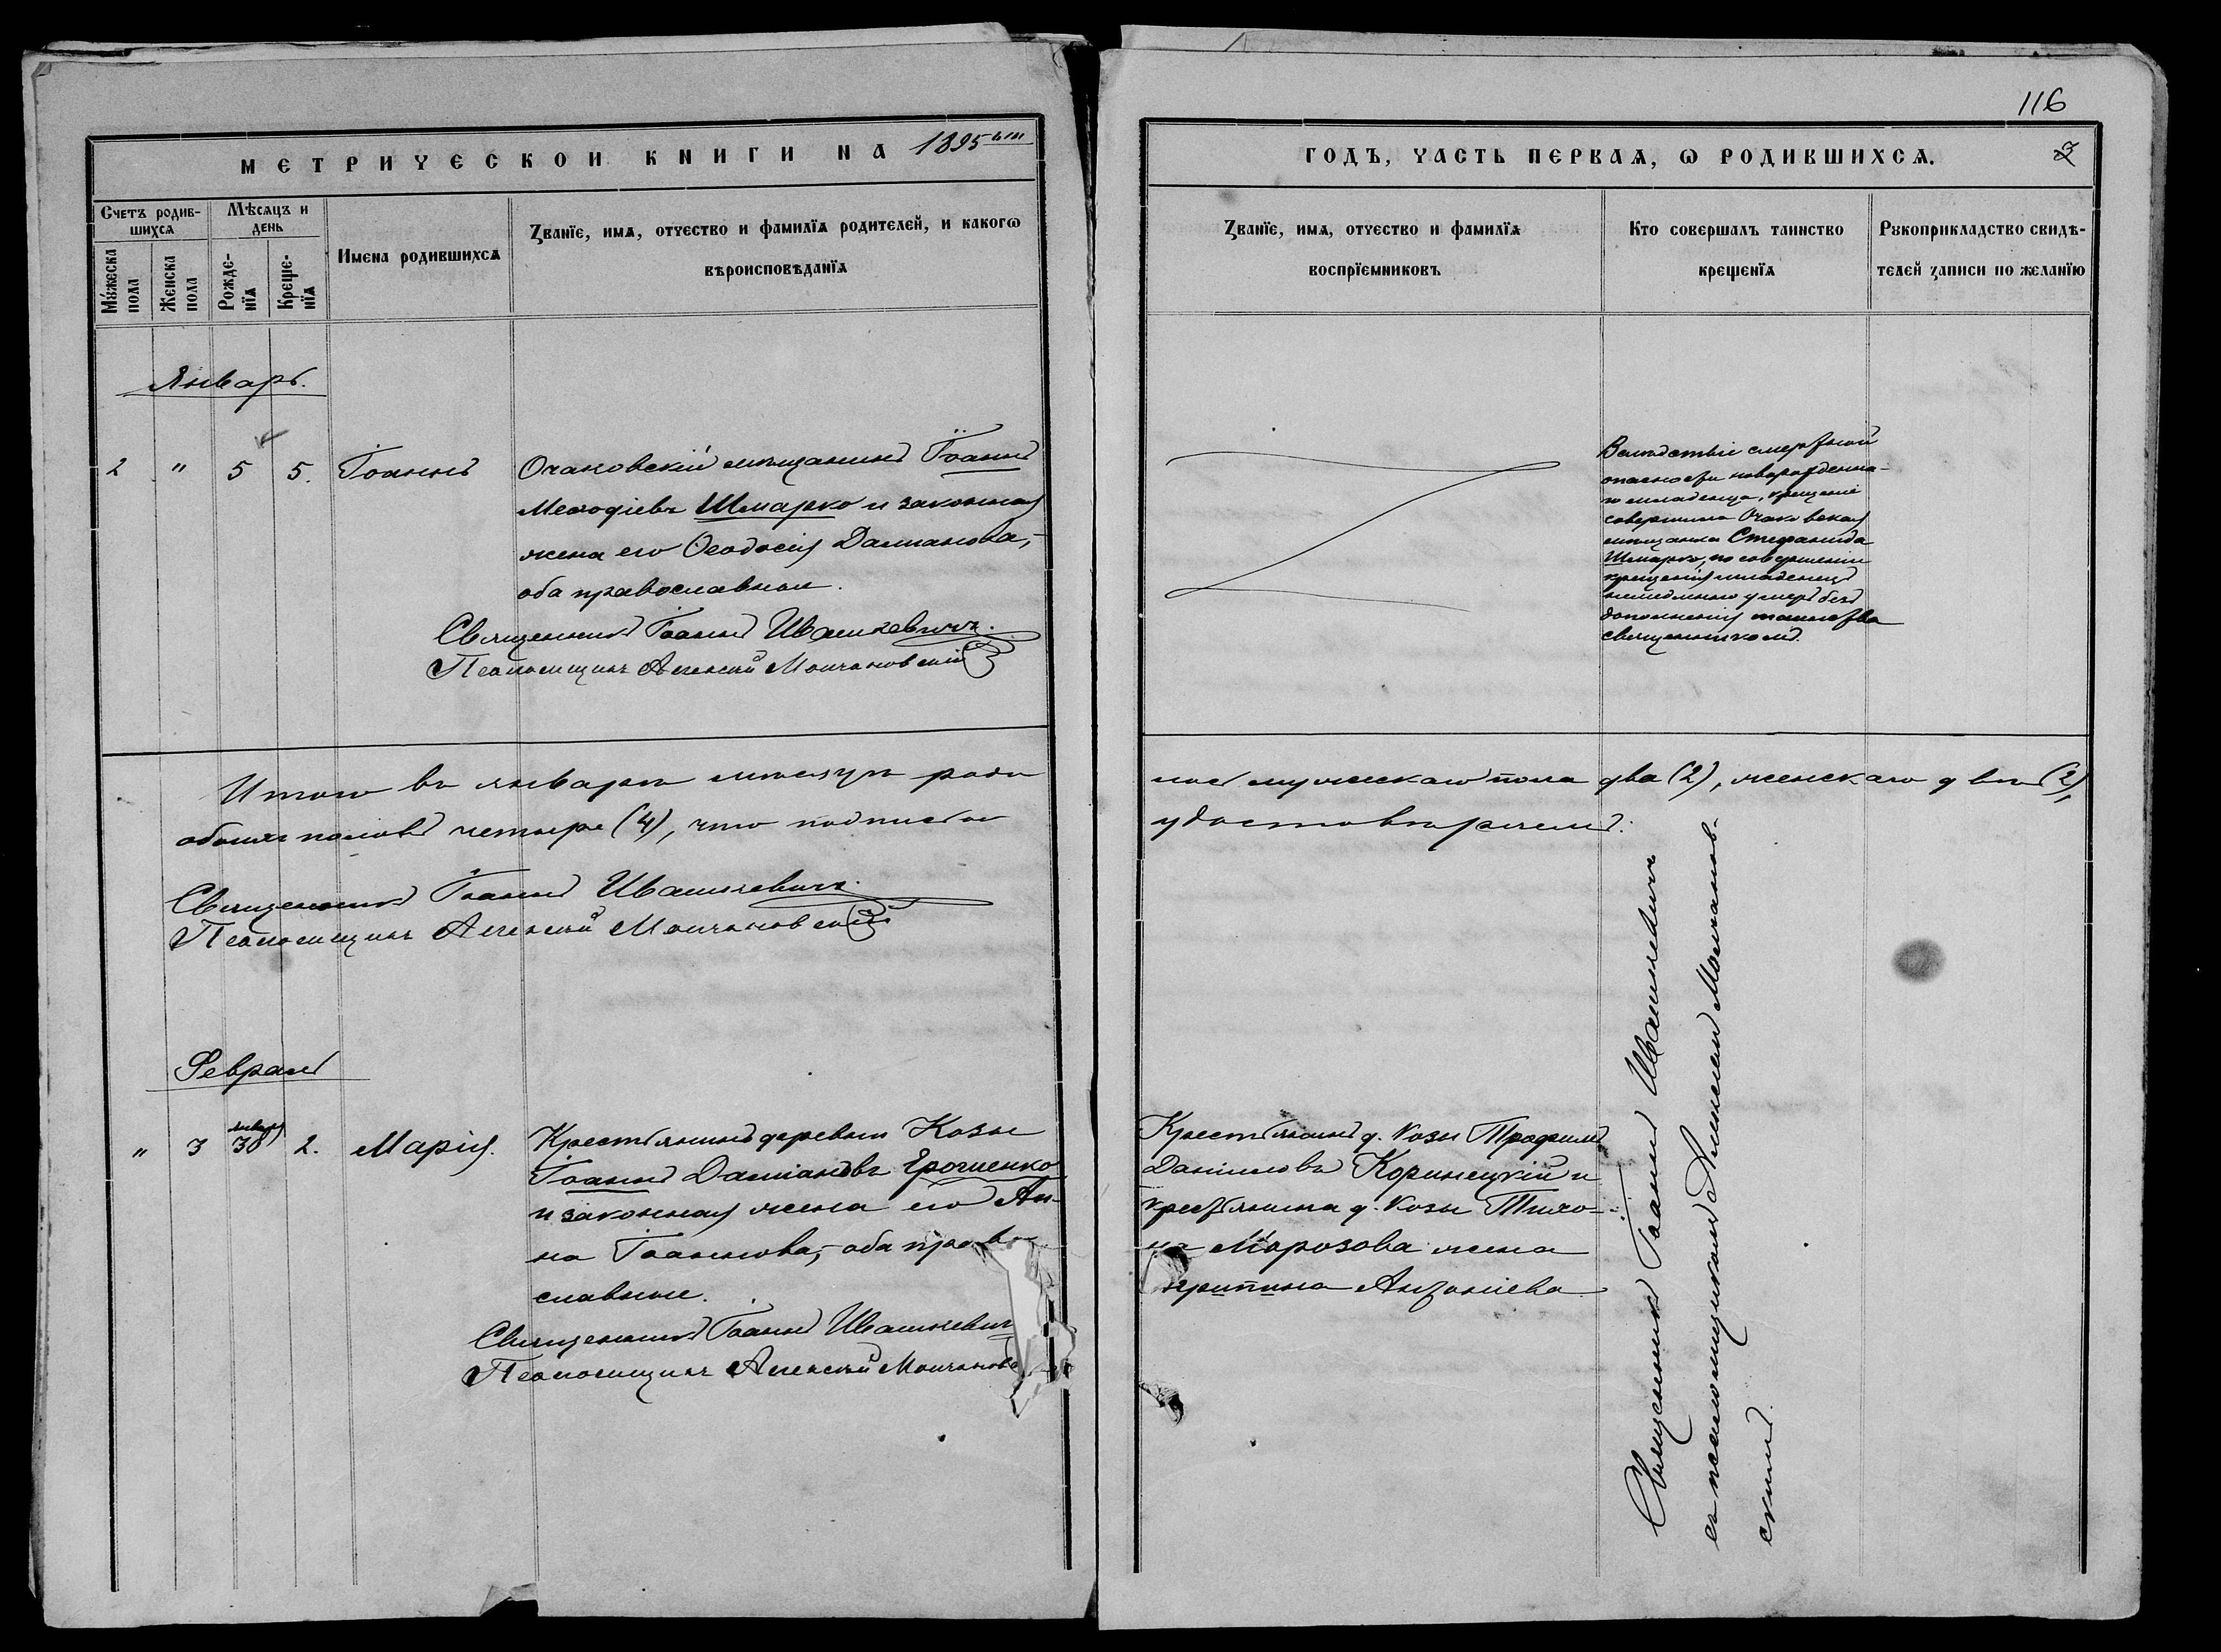 116
МЕТРИЧЕСКОИ КНИГИ НА 1895ый
ГОДЪ, ЧАСТЬ ПЕРВАЯ, Ѡ РОДИВШИХСЯ.
Счетъ родив-
шихся
Мѣсяцъ и
день
Мꙋжеска
пола
Женска
пола
Рожде-
нїя
Креще-
нїя
Имена родившихся
Званїе, имя, отчество и фамилїя родителей, и какогѡ
вѣроисповѣданїя
Званїе, имя, отчество и фамилїя
воспрїемниковъ
Кто совершалъ таинство
крещенїя
Рꙋкоприкладство свидѣ-
телей записи по желанїю
Январь.
2 " 5 5. Іоаннъ
Очаковскій мѣщанинъ Іоаннъ
Меѳодіевъ Шмарко и законная
жена его Ѳеодосія Даміанова,-
оба православные.
Священникъ Іоаннъ Ивашкевичъ.
Псаломщикъ Алексій Молчановскій
Вслѣдствіе смертной
опасности новорожденна-
го младенца, крещеніе
совершила Очаковская
мѣщанка Стефанида
Шмарко, по совершеніи
крещенія младенецъ
немедленно умеръ безъ
дополненія таинства
священникомъ.
Итого въ январѣ мѣсяцѣ роди
лось мужескаго пола два (2), женскаго двѣ (2),
обоихъ половъ четыре (4), что подписью
удостовѣряемъ:
Священникъ Іоаннъ Ивашкевичъ.
Псаломщикъ Алексій Молчановскій
Февраль
" 3 января 30 2. Марія.
Крестьянинъ деревни Козы
Іоаннъ Даміановъ Ярошенко
и законная жена его Ан-
на Іоаннова,- оба право
славные.
Священникъ Іоаннъ Ивашкевичъ
Псаломщикъ Алексій Молчановс
Крестьянинъ д. Козы Трофимъ
Даніиловъ Коринецкій и
крестьянина д. Козы Тихо-
на Морозова жена
Антоніева
Священникъ Іоаннъ Ивашкевичъ
съ псаломщикомъ Алексіемъ Молчанов-
скимъ.